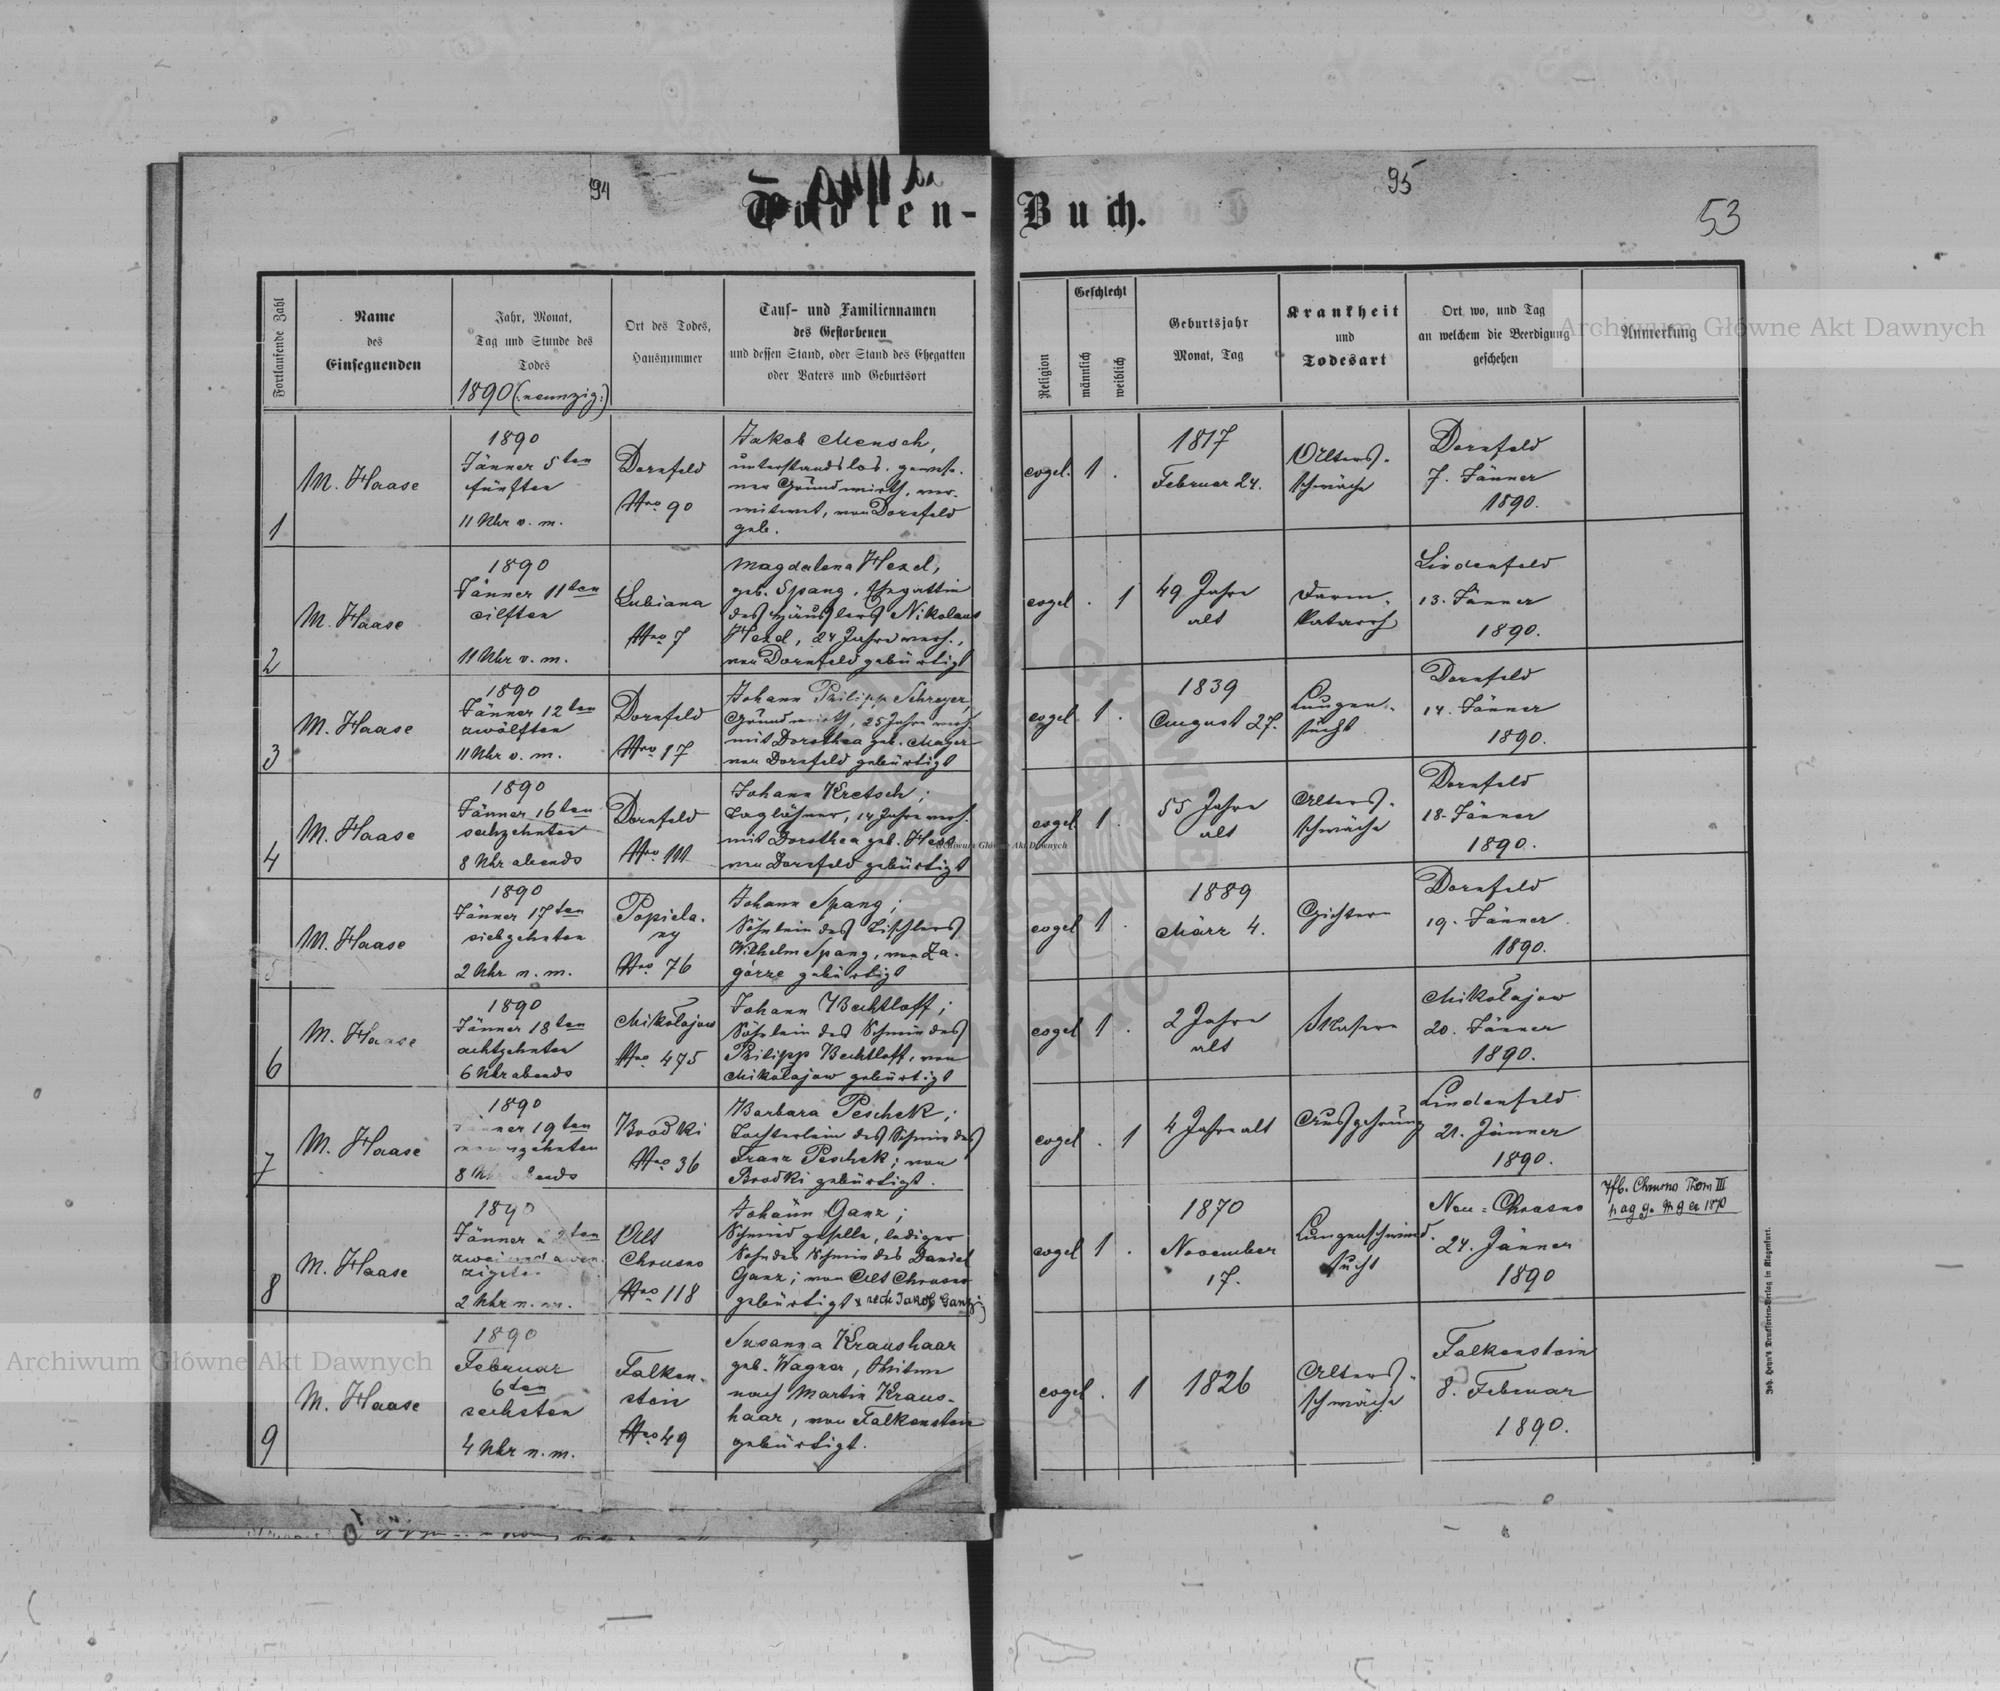 94
95
53
Todten-Buch.
Fortlaufende Zahl
Name
des
Einsegnenden
Jahr, Monat,
Tag und Stunde des
Todes
1890 (:neunzig:)
Ort des Todes,
Hausnummer
Tauf- und Familiennamen
des Gestorbenen
und dessen Stand, oder Stand des Ehegatten
oder Vaters und Geburtsort
Religion
Geschlecht
männlich
weiblich
Geburtsjahr
Monat, Tag
Krankheit
und
Todesart
Ort wo, und Tag
an welchem die Beerdigung
geschehen
Anmerkung
1
M. Haase
1890
Jänner 5ten
fünften
11 Uhr v. m.
Dornfeld
Nro 90
Jakob Mensch,
unterstandslos. gewese-
ner Grundwirth, ver-
witwet, von Dornfeld
geb.
evgel. 1 .
1817
Februar 24.
Alters-
schwäche
Dornfeld
7. Jänner
1890.
2
M. Haase
1890
Jänner 11ten
eilften
11 Uhr v. m.
Lubiana
Nro 7
Magdalena Hexel,
geb. Spang, Ehegattin
des Häuslers Nikolaus
Hexel, 24 Jahre verh.,
von Dornfeld gebürtigt
evgel . 1
49 Jahre
alt
Darm-
katarrh
Lindenfeld
13. Jänner
1890.
3
M. Haase
1890
Jänner 12ten
zwölften
11 Uhr v. m.
Dornfeld
Nro 17
Johann Philipp Schreyer,
Grundwirth, 25 Jahre verh.
mit Dorothea geb. Mayer
von Dornfeld gebürtigt
evgel 1 .
1839
August 27.
Lungen-
sucht
Dornfeld
14. Jänner
1890.
4
M. Haase
1890
Jänner 16ten
sechzehnten
8 Uhr abends
Dornfeld
Nro 111
Johann Kretsch;
Taglöhner, 14 Jahre verh.
mit Dorothea geb. Hess
von Dornfeld gebürtigt
evgel 1 .
55 Jahre
alt
Alters-
schwäche
Dornfeld
18. Jänner
1890.
5
M. Haase
1890
Jänner 17ten
siebzehnten
2 Uhr n. m.
Popiela-
ny
Nro 76
Johann Spang;
Söhnlein des Tischlers
Wilhelm Spang, von Za-
górze gebürtigt
evgel 1 .
1889
März 4.
Gichtern
Dornfeld
19. Jänner
1890.
6
M. Haase
1890
Jänner 18ten
achtzehnten
6 Uhr abends
Mikołajow
Nro 475
Johann Bechtloff;
Söhnlein des Schmindes
Philipp Bechtloff, von
Mikołajow gebürtigt
evgel 1 .
2 Jahre
alt
Masern
Mikołajow
20. Jänner
1890.
7
M. Haase
1890
Jänner 19ten
neunzehnten
8 Uhr abends
Brodki
Nro 36
Barbara Peschek;
Tochterlein des Schmindes
Franz Peschek; von
Brodki gebürtigt.
evgel . 1
4 Jahre alt
Auszehrung
Lindenfeld
21. Jänner
1890.
8
M. Haase
1890
Jänner 22ten
zweiundzwan-
zigsten
2 Uhr n. m.
Alt
Chrusno
Nro 118
Johann Ganz;
Schmiedgeselle, lediger
Sohn des Schmindes Daniel
Ganz; von Alt Chrusno
gebürtigt recte Jakob Ganz
evgel 1 .
1870
November
17.
Lungenschwind-
sucht
Neu-Chrusno
24. Jänner
1890
Tfb. Chrusno Thom III
9
M. Haase
1890
Februar
6ten
sechsten
4 Uhr n. m.
Falken-
stein
Nro 49
Susanna Kraushaar
geb. Wagner, Witwe
nach Martin Kraus-
haar, von Falkenstein
gebürtigt.
evgel . 1
1826
Alters-
schwäche
Falkenstein
8. Februar
1890.
Joh. Heyn's Drucksorten-Verlag in Klagenfurt.
Archiwum Główne Akt Dawnych
Archiwum Główne Akt Dawnych
Archiwum Główne Akt Dawnych